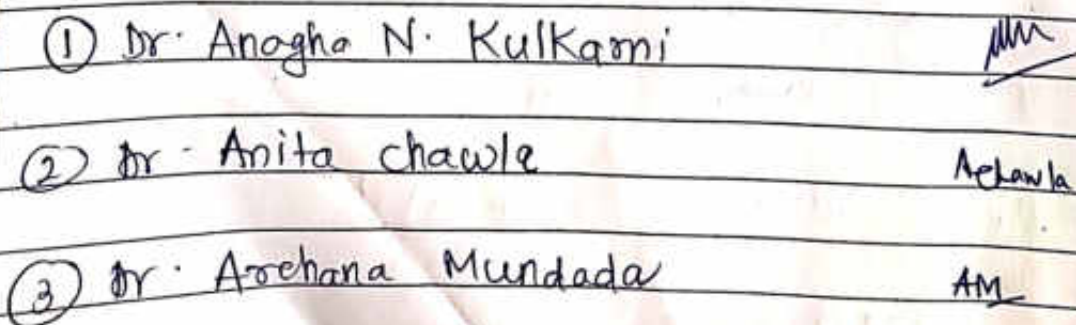 ① Dr. Anagha N. Kulkarni
② Dr. Anita chawla Achawla
③ Dr. Archana Mundada AM